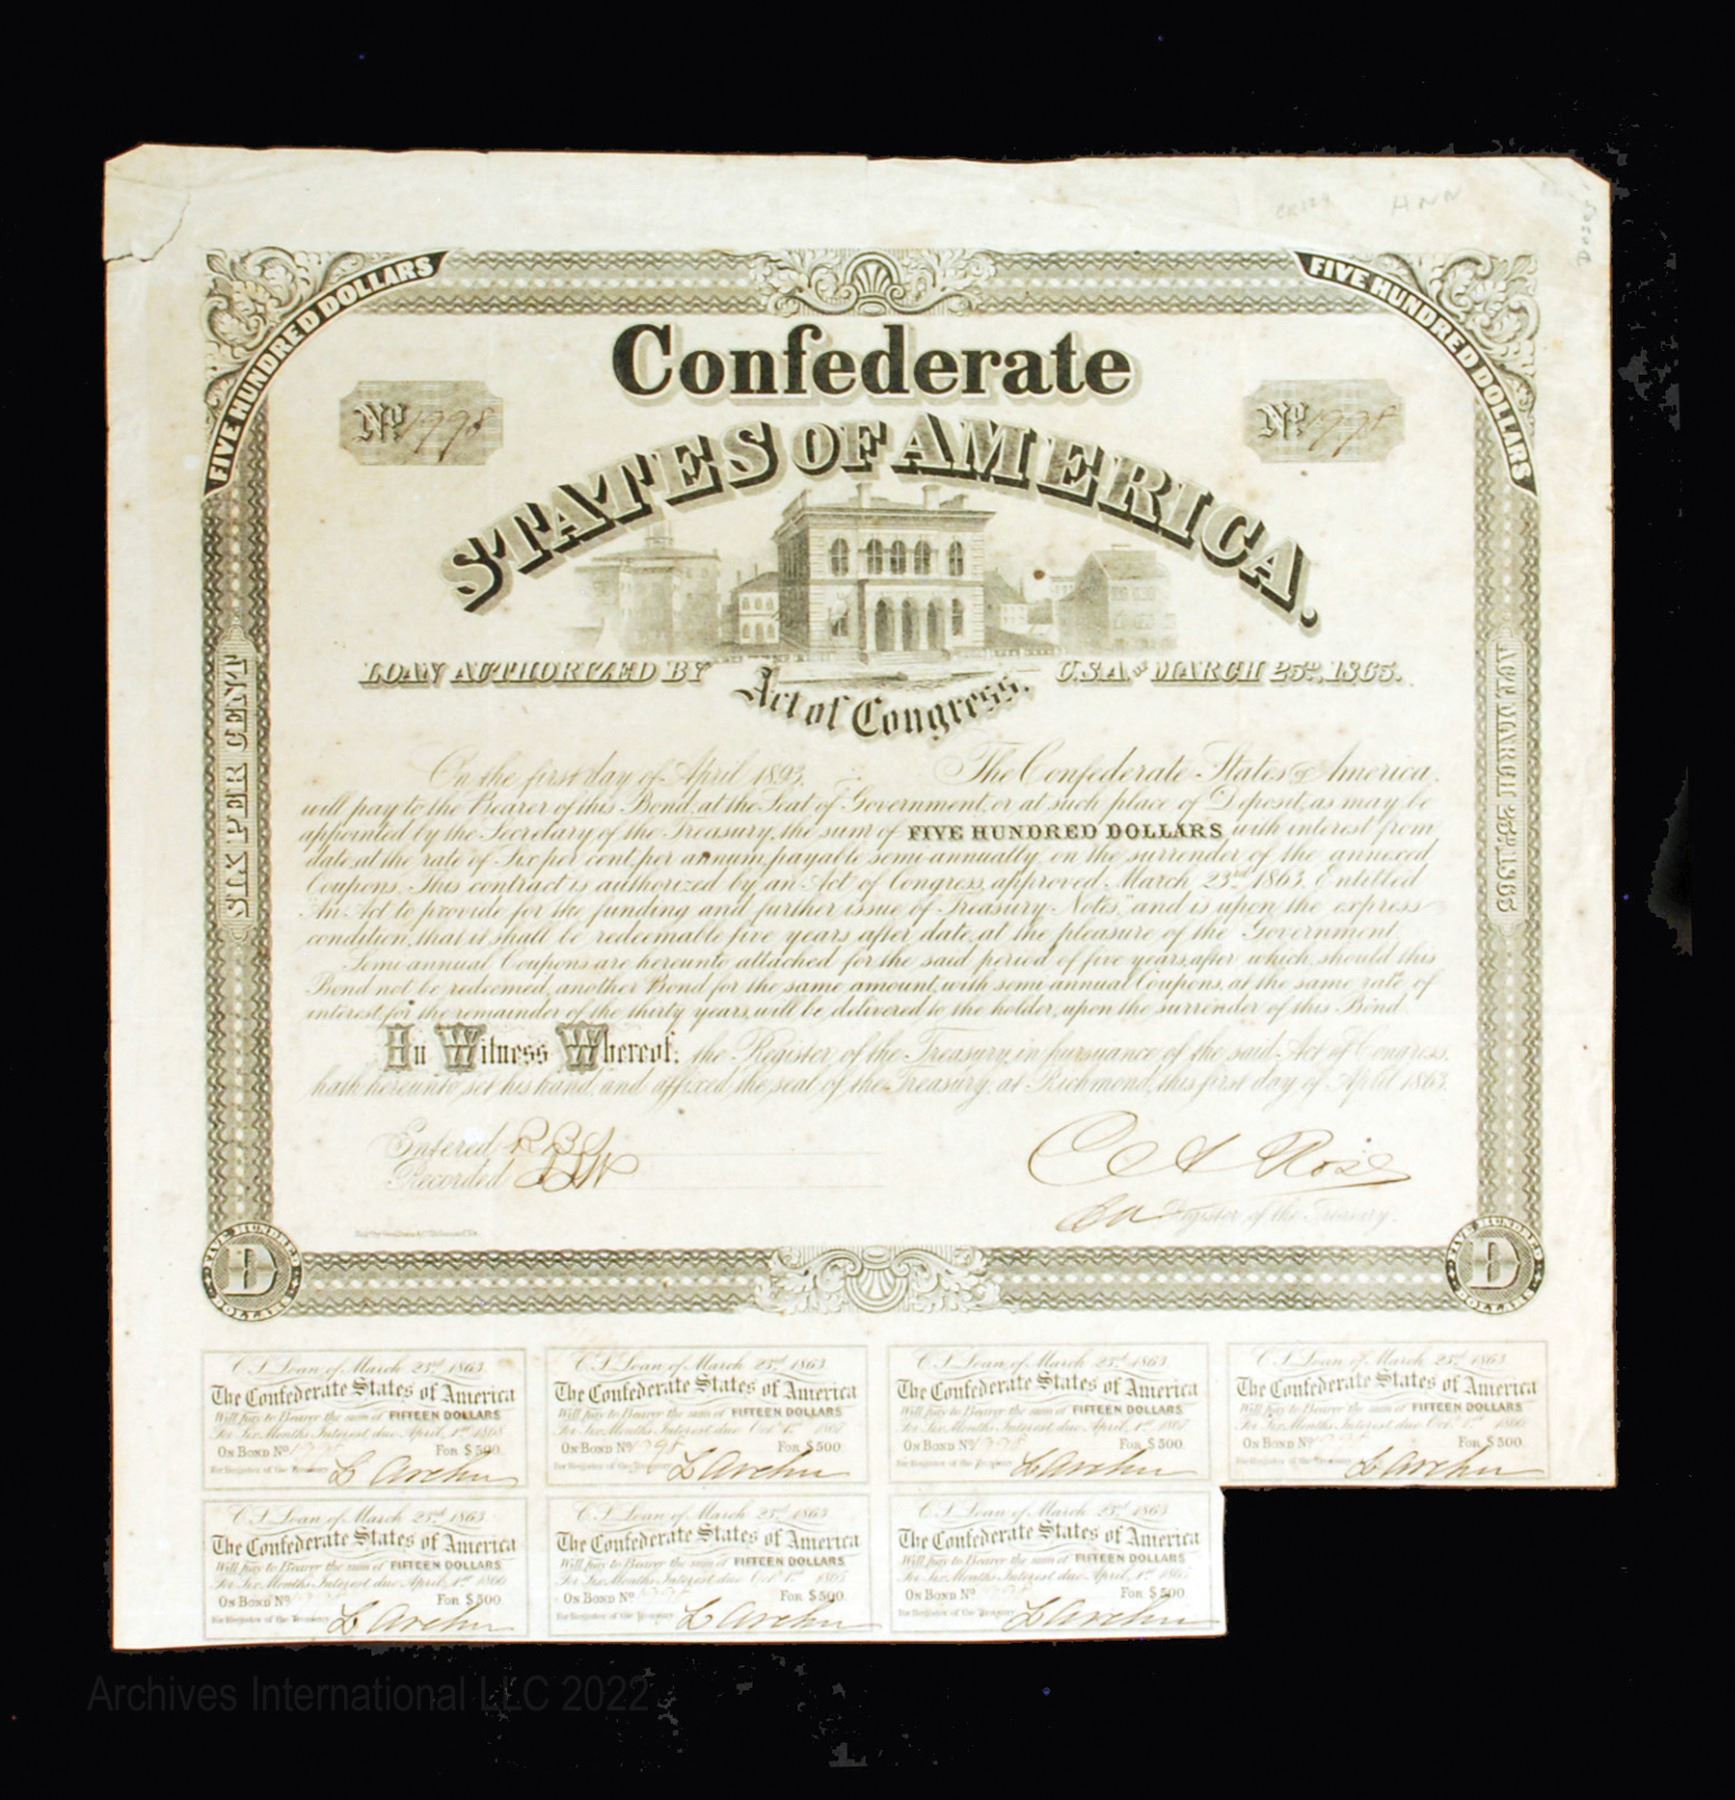 CR129 HNN
FIVE HUNDRED DOLLARS
FIVE HUNDRED DOLLARS
Confederate
No 1998
No 1998
STATES OF AMERICA.
LOAN AUTHORIZED BY Act of Congress. C.S.A. OF MARCH 23RD, 1863.
SIX PER CENT
ACT MARCH 23RD, 1863
On the first day of April 1893. The Confederate States of America,
will pay to the Bearer of this Bond, at the Seat of Government, or at such place of Deposit, as may be
appointed by the Secretary of the Treasury, the sum of FIVE HUNDRED DOLLARS with interest from
date, at the rate of Six per cent, per annum, payable semi-annually, on the surrender of the annexed
Coupons. This contract is authorized by an Act of Congress, approved March 23rd 1863. Entitled
"An Act to provide for the funding and further issue of Treasury Notes," and is upon the express
condition, that it shall be redeemable five years after date, at the pleasure of the Government.
Semi annual Coupons are hereunto attached for the said period of five years, after which, should this
Bond not be redeemed, another Bond for the same amount, with semi annual Coupons, at the same rate of
interest, for the remainder of the thirty years, will be delivered to the holder, upon the surrender of this Bond.
In Witness Whereof, the Register of the Treasury, in pursuance of the said Act of Congress,
hath hereunto set his hand, and affixed the seal of the Treasury, at Richmond, this first day of April 1863.
Entered
Recorded
C A Rose
Register of the Treasury.
FIVE HUNDRED D DOLLARS
FIVE HUNDRED D DOLLARS
C. S. Loan of March 23rd 1863.
The Confederate States of America
Will pay to Bearer the sum of FIFTEEN DOLLARS
for Six Months Interest due April 1st 1868
ON BOND No 1998 FOR $500
For Register of the Treasury
C. S. Loan of March 23rd 1863
The Confederate States of America
Will pay to Bearer the sum of FIFTEEN DOLLARS
for Six Months Interest due Oct. 1st 1867
ON BOND No 1998 FOR $500
For Register of the Treasury
C. S. Loan of March 23rd 1863
The Confederate States of America
Will pay to Bearer the sum of FIFTEEN DOLLARS
for Six Months Interest due April 1st 1867
ON BOND No 1998 FOR $500
For Register of the Treasury
C. S. Loan of March 23rd 1863
The Confederate States of America
Will pay to Bearer the sum of FIFTEEN DOLLARS
for Six Months Interest due Oct. 1st 1866
ON BOND No FOR $500
For Register of the Treasury
C. S. Loan of March 23rd 1863
The Confederate States of America
Will pay to Bearer the sum of FIFTEEN DOLLARS
for Six Months Interest due April 1st 1866
ON BOND No FOR $500
For Register of the Treasury
C. S. Loan of March 23rd 1863
The Confederate States of America
Will pay to Bearer the sum of FIFTEEN DOLLARS
for Six Months Interest due Oct. 1st 1865
ON BOND No 1998 FOR $500
For Register of the Treasury
C. S. Loan of March 23rd 1863
The Confederate States of America
Will pay to Bearer the sum of FIFTEEN DOLLARS
for Six Months Interest due April 1st 1865
ON BOND No FOR $500
For Register of the Treasury
Archives International LLC 2022